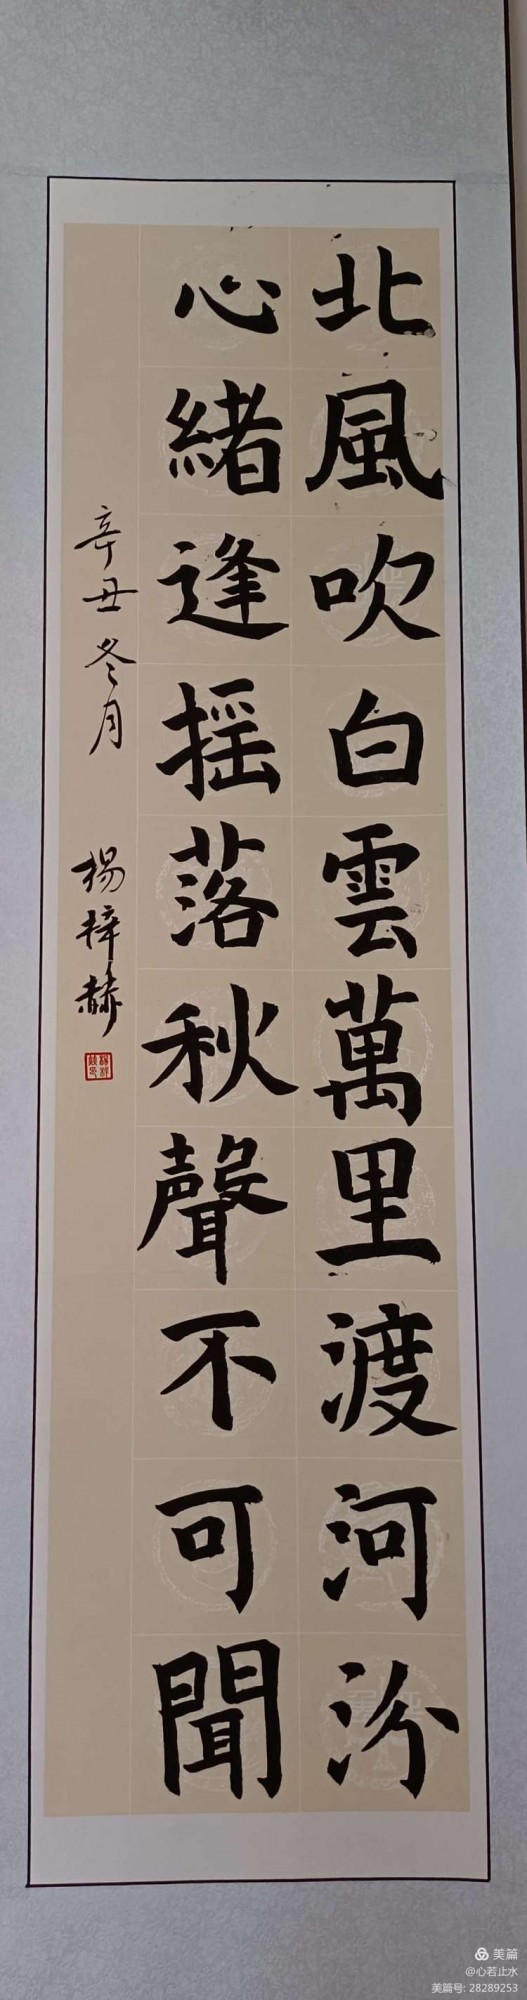 北風吹白雲萬里渡河汾
心緒逢摇落秋聲不可聞
辛丑冬月 楊梓赫
美篇
@心若止水
美篇号: 28289253